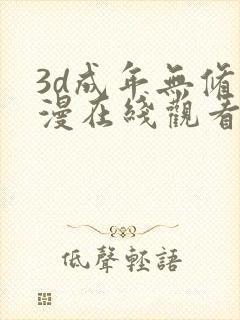 3d成年無修
漫在綫觀看
低聲輕語